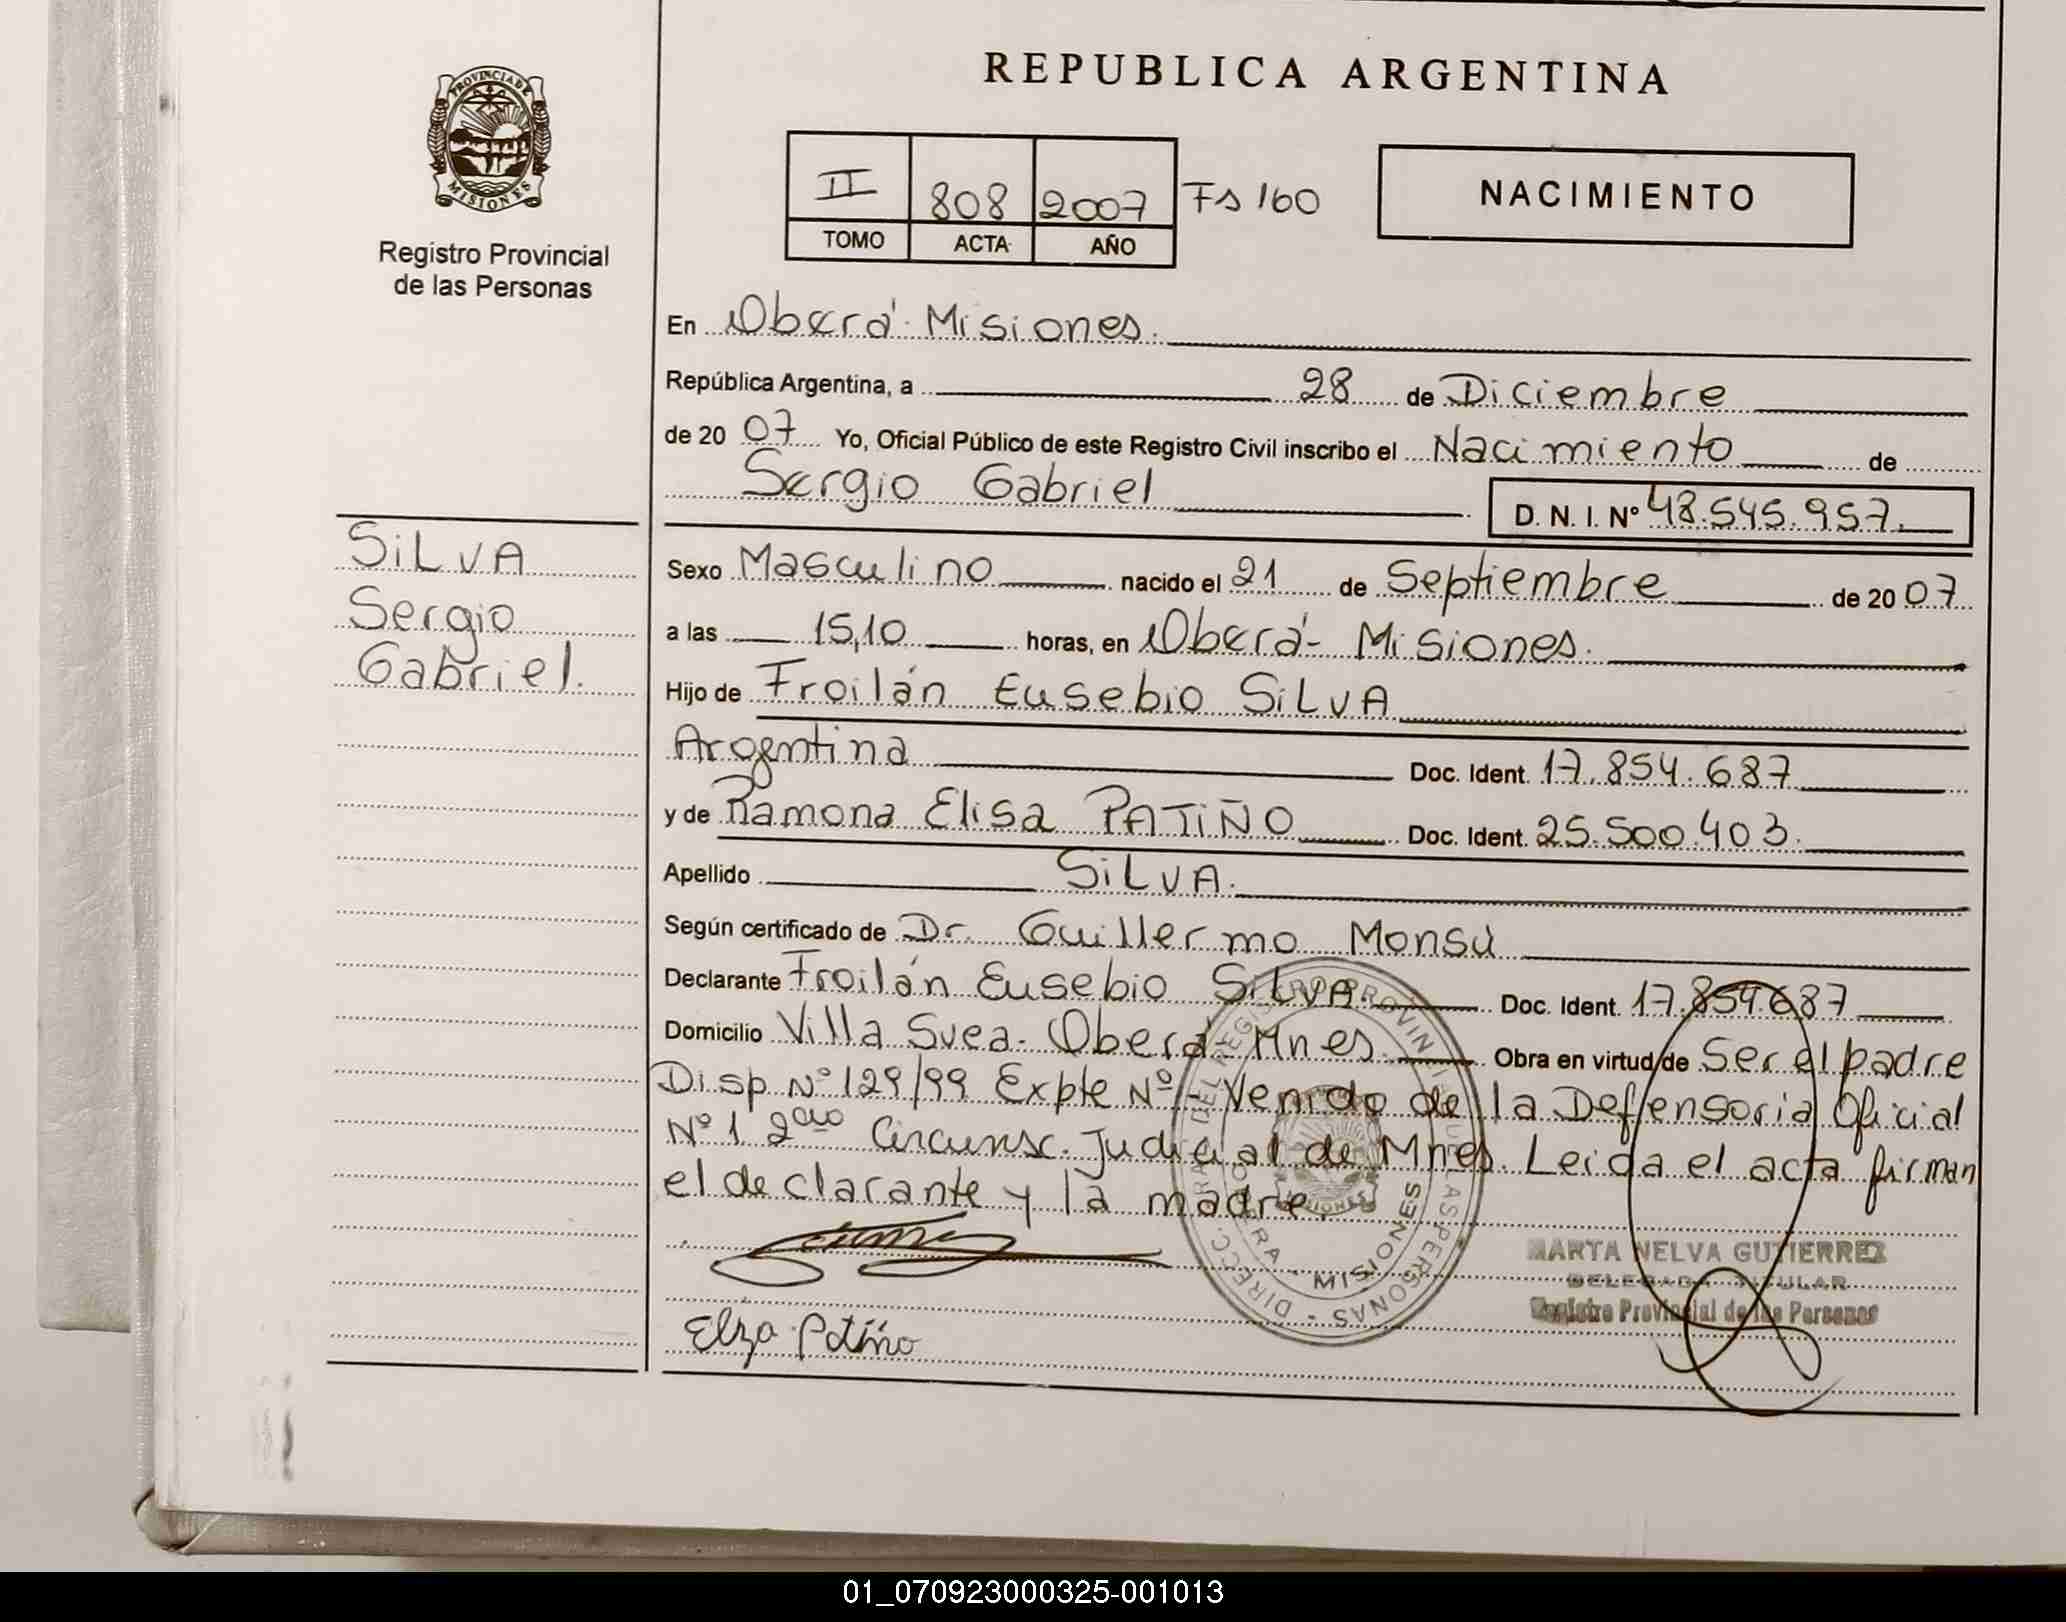 PROVINCIA DE
MISIONES
Registro Provincial
de las Personas
SiLVA
Sergio
Gabriel.
REPUBLICA ARGENTINA
II 808 2007 Fs 160
TOMO ACTA AÑO
NACIMIENTO
En Oberá - Misiones.
República Argentina, a 28 de Diciembre
de 20 07 Yo, Oficial Público de este Registro Civil inscribo el Nacimiento de
Sergio Gabriel D. N. I. Nº 48.545.957.
Sexo Masculino nacido el 21 de Septiembre de 20 07
a las 15,10 horas, en Oberá - Misiones.
Hijo de Froilán Eusebio SiLVA
Argentina Doc. Ident. 17.854.687
y de Ramona Elisa PATiÑO Doc. Ident. 25.500.403.
Apellido SiLVA.
Según certificado de Dr. Guillermo Monsú
Declarante Froilán Eusebio SiLVA. Doc. Ident. 17.854.687
Domicilio Villa Svea - Oberá - Mnes. Obra en virtud de Ser el padre
Disp Nº 129/99 Expte Nº - Venido de la Defensoria Oficial
Nº 1 2da Circunsc. Judicial de Mnes. Leida el acta firman
el declarante y la madre.
Elza Patiño
MARTA NELVA GUTIERREZ
DELEGADA TITULAR
Registro Provincial de las Personas
01_070923000325-001013